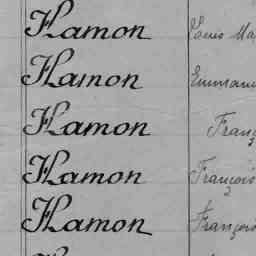 Hamon Louis Ma
Hamon Emmanu
Hamon Franç
Hamon François
Hamon François